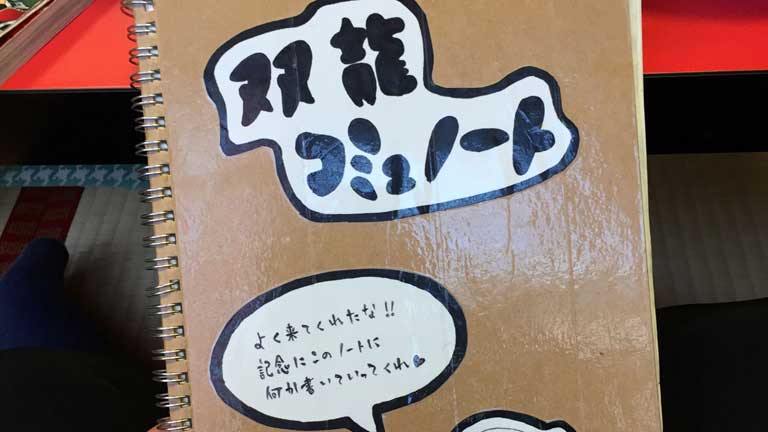 双龍
コミュノート
よく来てくれたな!!
記念にこのノートに
何か書いていってくれ♥